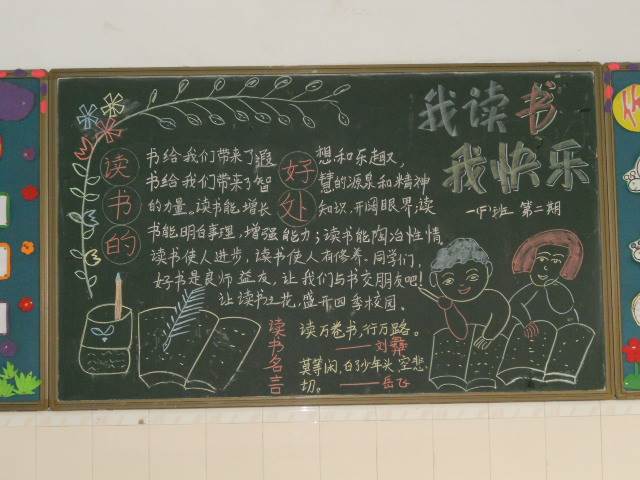 我读书
我快乐
一(4)班 第二期
读书的
好处
书给我们带来了遐想和乐趣,
书给我们带来了智慧的源泉和精神
的力量。读书能增长知识,开阔眼界;读
书能明白事理,增强能力;读书能陶冶性情,
读书使人进步,读书使人有修养。同学们,
好书是良师益友,让我们与书交朋友吧!
让读书之花,盛开四季校园。
读书名言
读万卷书,行万里路。
——刘彝
莫等闲,白了少年头,空悲
切。——岳飞